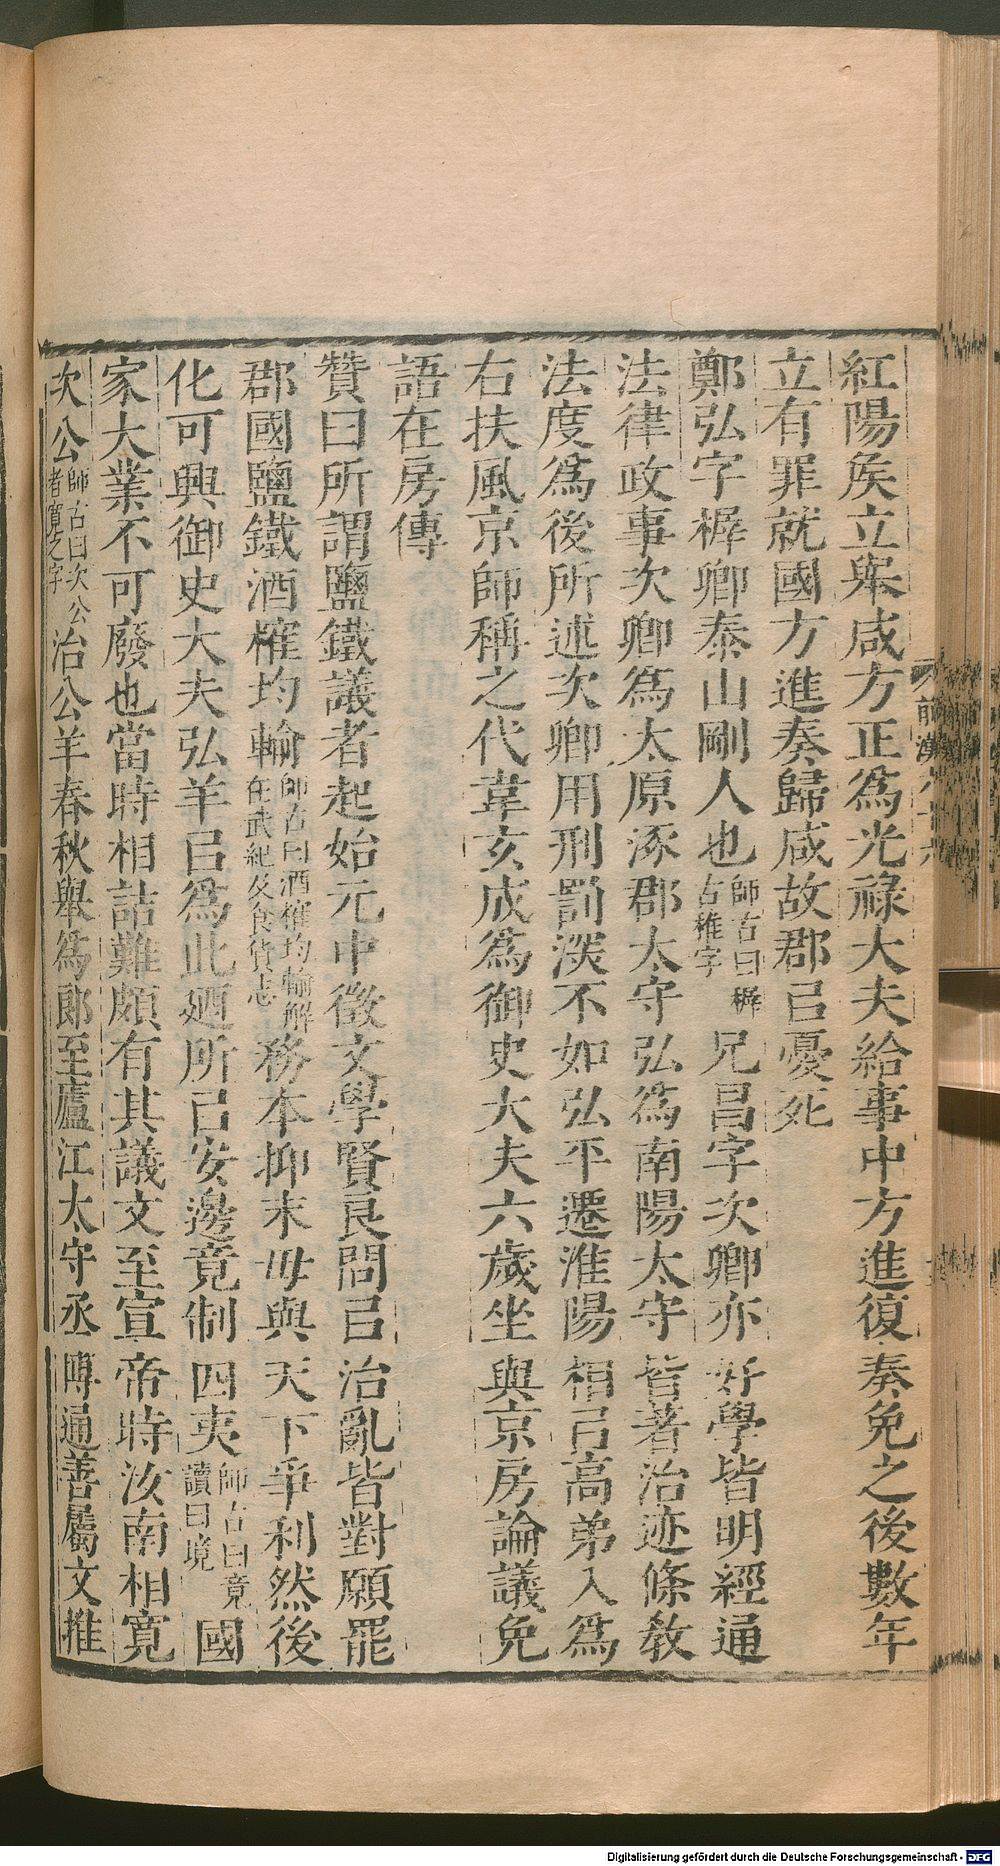 紅陽矦立舉咸方正爲光祿大夫給事中方進復奏免之後數年
立有罪就國方進奏歸咸故郡㠯憂死
鄭弘字稺卿泰山剛人也師古曰稺古稚字兄昌字次卿亦好學皆明經通
法律政事次卿爲太原涿郡太守弘爲南陽太守皆著治迹條教
法度爲後所述次卿用刑罰深不如弘平遷淮陽相㠯高弟入爲
右扶風京師稱之代韋玄成爲御史大夫六歲坐與京房論議免
語在房傳
贊曰所謂鹽鐵議者起始元中徵文學賢良問㠯治亂皆對願罷
郡國鹽鐵酒榷均輸師古曰酒榷均輸解在武紀及食貨志務本抑末毋與天下爭利然後
化可興御史大夫弘羊㠯爲此廼所㠯安邊竟制四夷師古曰竟讀曰境國
家大業不可廢也當時相詰難頗有其議文至宣帝時汝南桓寬
次公師古曰次公者寬之字治公羊春秋舉爲郎至廬江太守丞博通善屬文推
前漢六十六
Digitalisierung gefördert durch die Deutsche Forschungsgemeinschaft - DFG